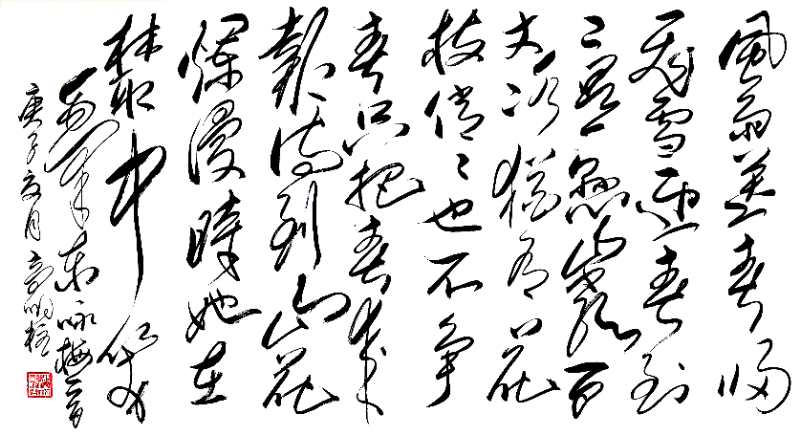 風雨送春歸
飛雪迎春到
已是懸崖百
丈冰猶有花
枝俏〻也不爭
春只把春來
報待到山花
爛漫時她在
叢中笑
東咏梅一首
庚子 月